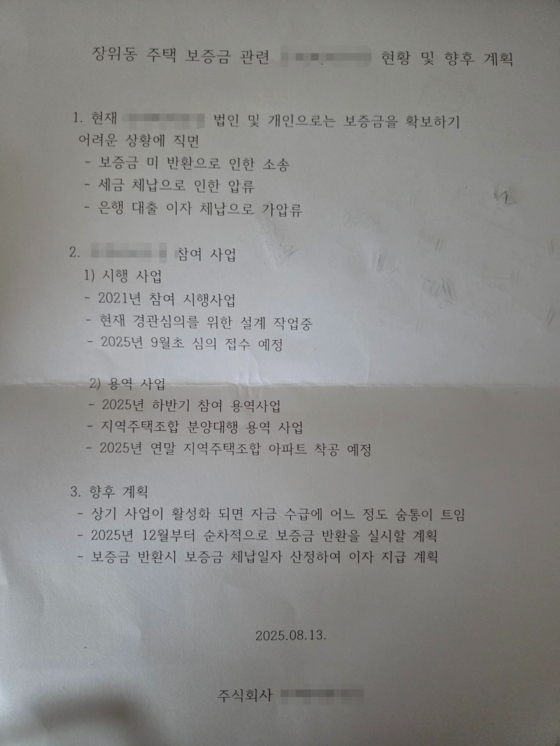 장위동 주택 보증금 관련 현황 및 향후 계획
1. 현재 법인 및 개인으로는 보증금을 확보하기
어려운 상황에 직면
- 보증금 미 반환으로 인한 소송
- 세금 체납으로 인한 압류
- 은행 대출 이자 체납으로 가압류
2. 참여 사업
1) 시행 사업
- 2021년 참여 시행사업
- 현재 경관심의를 위한 설계 작업중
- 2025년 9월초 심의 접수 예정
2) 용역 사업
- 2025년 하반기 참여 용역사업
- 지역주택조합 분양대행 용역 사업
- 2025년 연말 지역주택조합 아파트 착공 예정
3. 향후 계획
- 상기 사업이 활성화 되면 자금 수급에 어느 정도 숨통이 트임
- 2025년 12월부터 순차적으로 보증금 반환을 실시할 계획
- 보증금 반환시 보증금 체납일자 산정하여 이자 지급 계획
2025.08.13.
주식회사